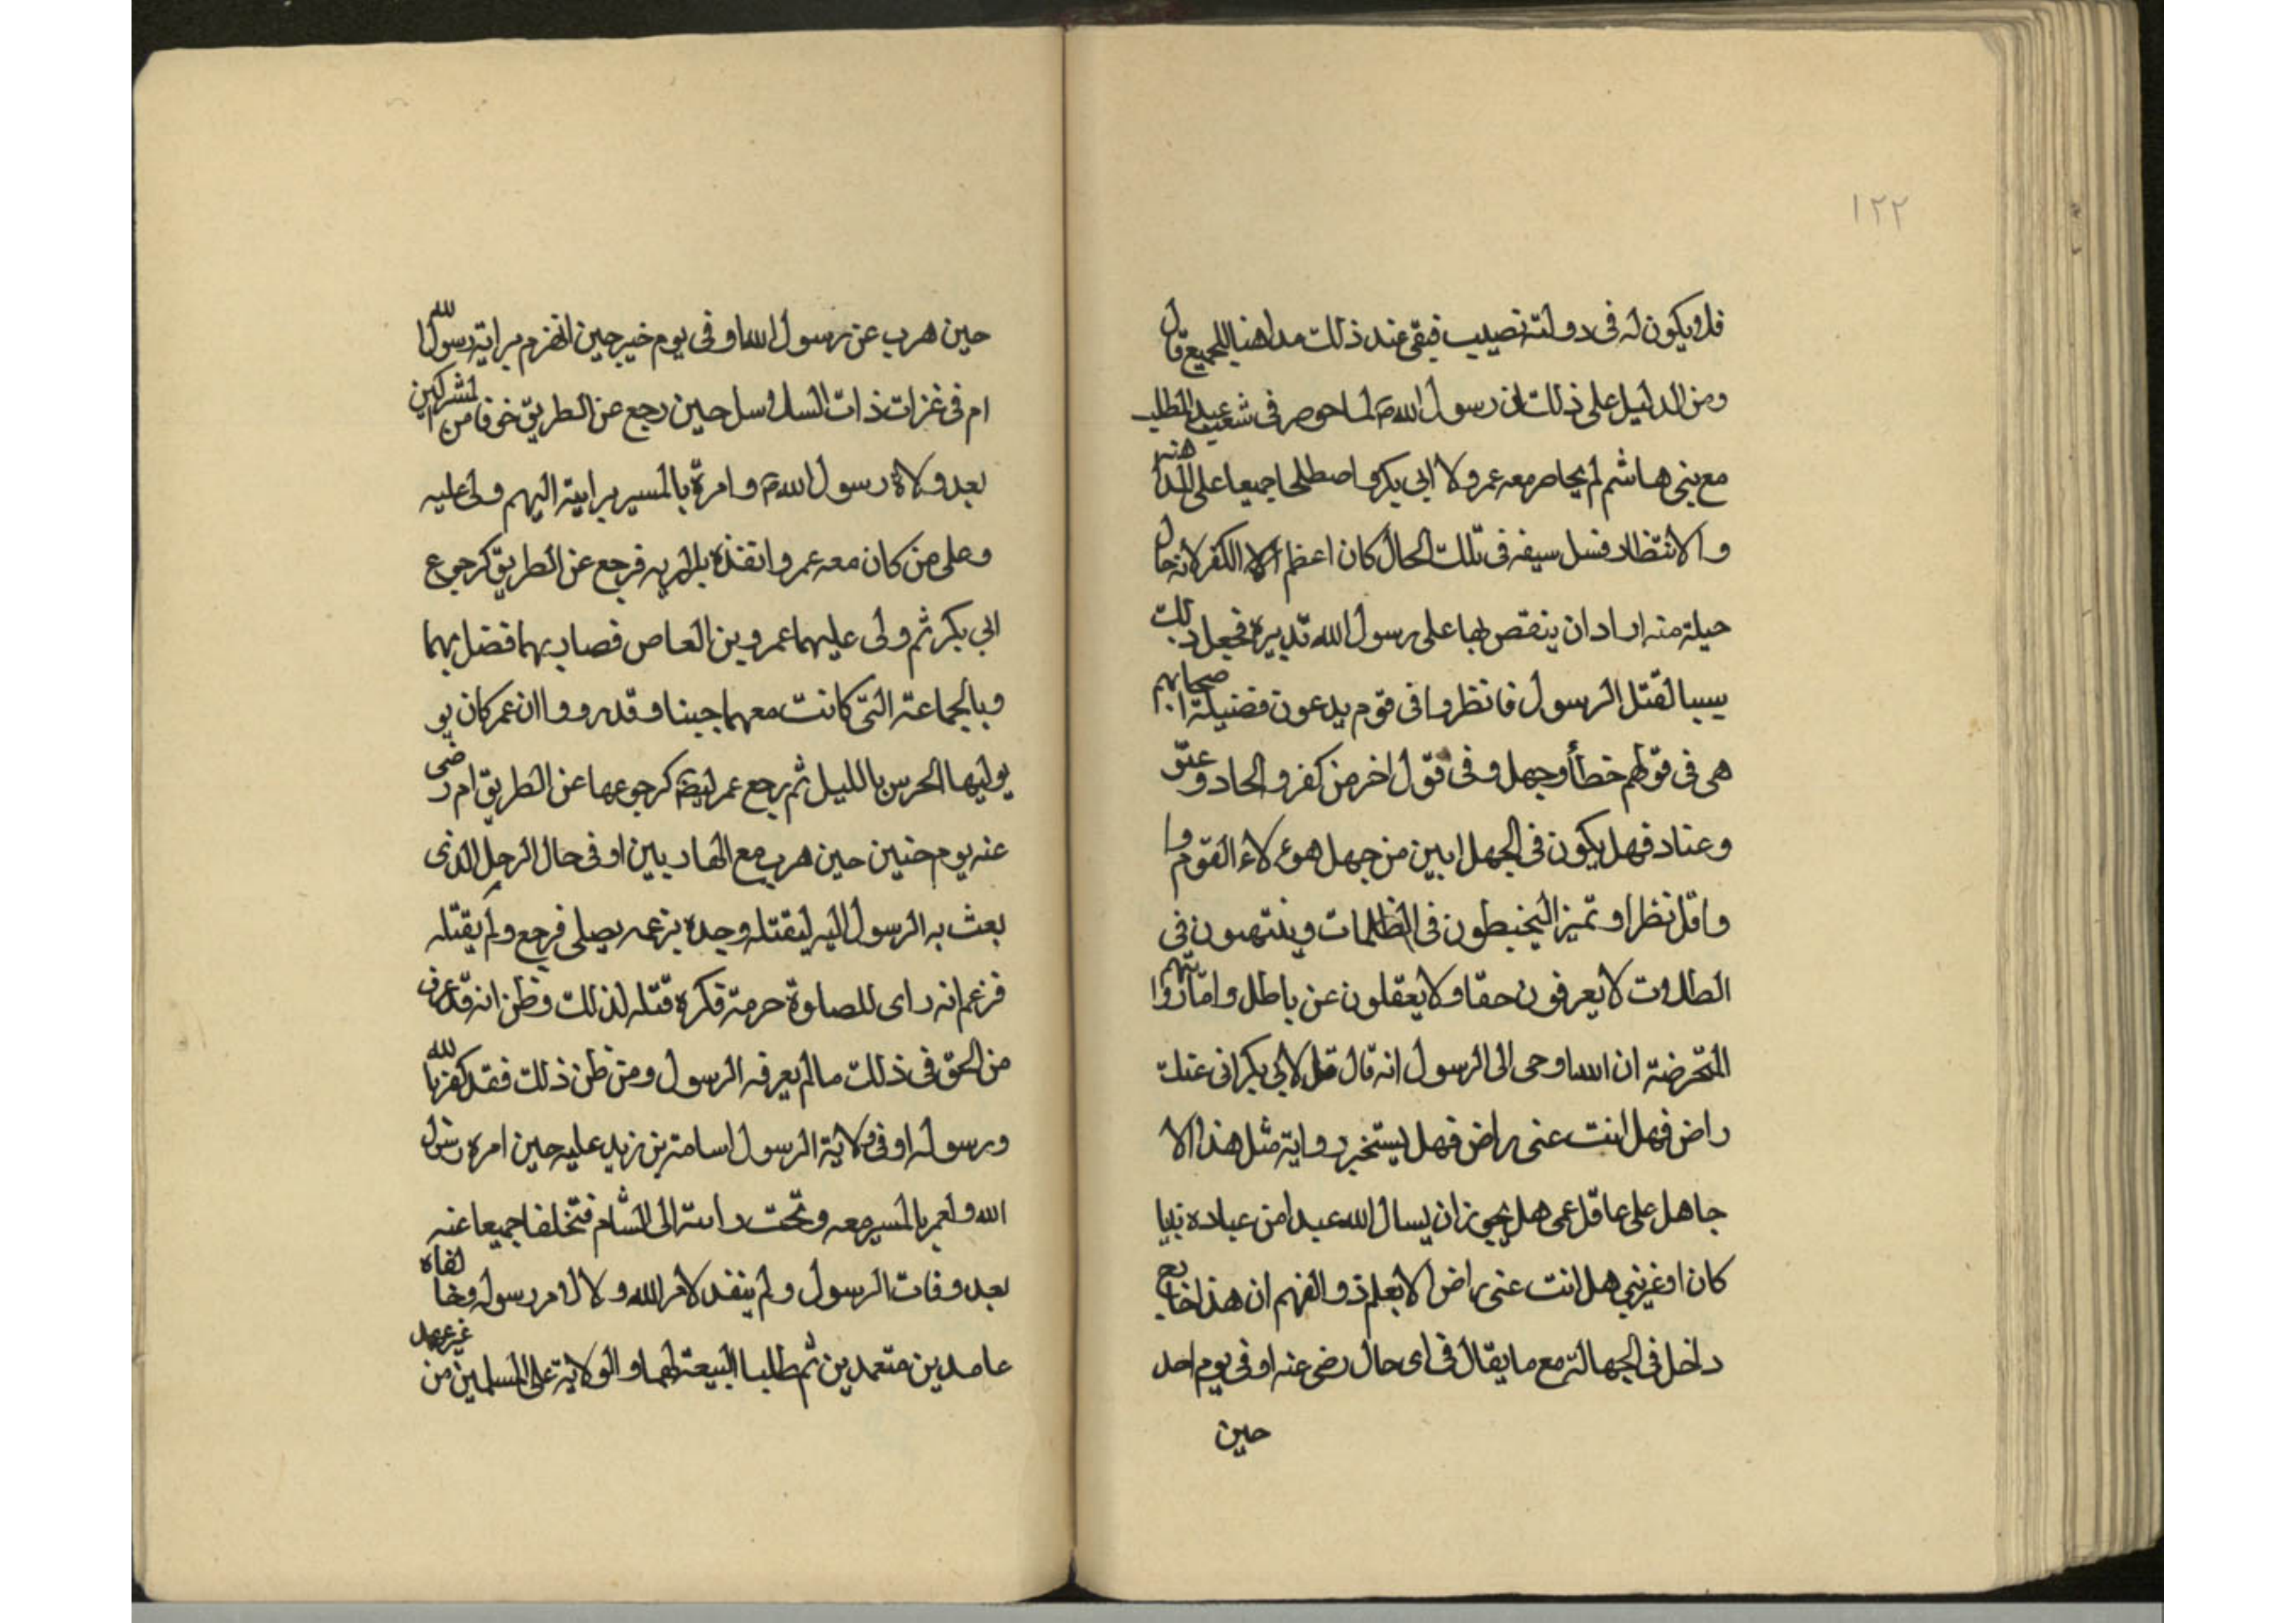 ١٢٢
فلا يكون له فى دولته نصيب فبقى عند ذلك مداهنا للجميع قال
ومن الدليل على ذلك ان رسول الله ص لما حوصر فى شعب عبد المطلب
مع بنى هاشم لم يحاصر معه عمر ولا ابى بكر واصطلحا جميعا على المداهنه
والانتظار فسل سيفه فى تلك الحال كان اعظم الكفر لانه حال
حيلة منه اراد ان ينقص بها على رسول الله تدبيره فجعل ذلك
سببا لقتل الرسول فانظروا فى قوم يدعون فضيلة اصحابهم
هى فى قولهم خطأ وجهل وفى قول اخر من كفر والحاد وعتو
وعناد فهل يكون فى الجهل ابين من جهل هوءلاء القوم وا
واقل نظرا وتميزا ليخبطون فى الظلمات وينتهون فى
الطلات لا يعرفون حقا ولا يعقلون عن باطل واما روايتهم
المتخرضة ان الله اوحى الى الرسول انه قال قل لابى بكر انى عنك
راض فهل انت عنى راض فهل يستخبر رواية مثل هذا الا
جاهل على عاقل عمى هل يجوز ان يسال الله عبدا من عباده نبيا
كان او غير نبى هل انت عنى راض الا بعلم ذو الفهم ان هذا خارج
داخل فى الجهالة مع ما يقال فى اى حال رضى عنه او فى يوم احد
حين
حين هرب عن رسول الله او فى يوم خيبر حين انهزم براية رسول الله
ام فى غزات ذات السلاسل حين رجع عن الطريق خوفا من المشركين
بعد ولاة رسول الله ص وامرة بالمسير براية اليهم وولى عليه
وعلى من كان معه عمر وانفذه بالراية فرجع عن الطريق كرجوع
ابى بكر ثم ولى عليهما عمرو بن العاص فصار بهما فضل بهما
وبالجماعة التى كانت معهما جبنا وقد رووا ان عمر كان يو
يوليها الحرس بالليل ثم رجع عمر ايضا كرجوعها عن الطريق ام رضى
عنه يوم حنين حين هرب مع الهاربين او فى حال الرجل الذى
بعث به الرسول اليه ليقتله وجده بزعمه يصلى فرجع ولم يقتله
فزعم انه راى للصلوة حرمة فكره قتله لذلك وظن انه قد عرف
من الحق فى ذلك مالم يعرفه الرسول ومن ظن ذلك فقد كفر بالله
ورسوله او فى ولاية الرسول اسامة بن زيد عليه حين امره رسول
الله ولعمر بالمسير معه وتحت رايته الى الشام فتخلفا جميعا عنه
بعد وفات الرسول ولم ينفد لامر الله ولا لامر رسوله وخالفاه
عامدين متعمدين ثم طلبا البيعة لهما والولاية على المسلمين من غير عهد